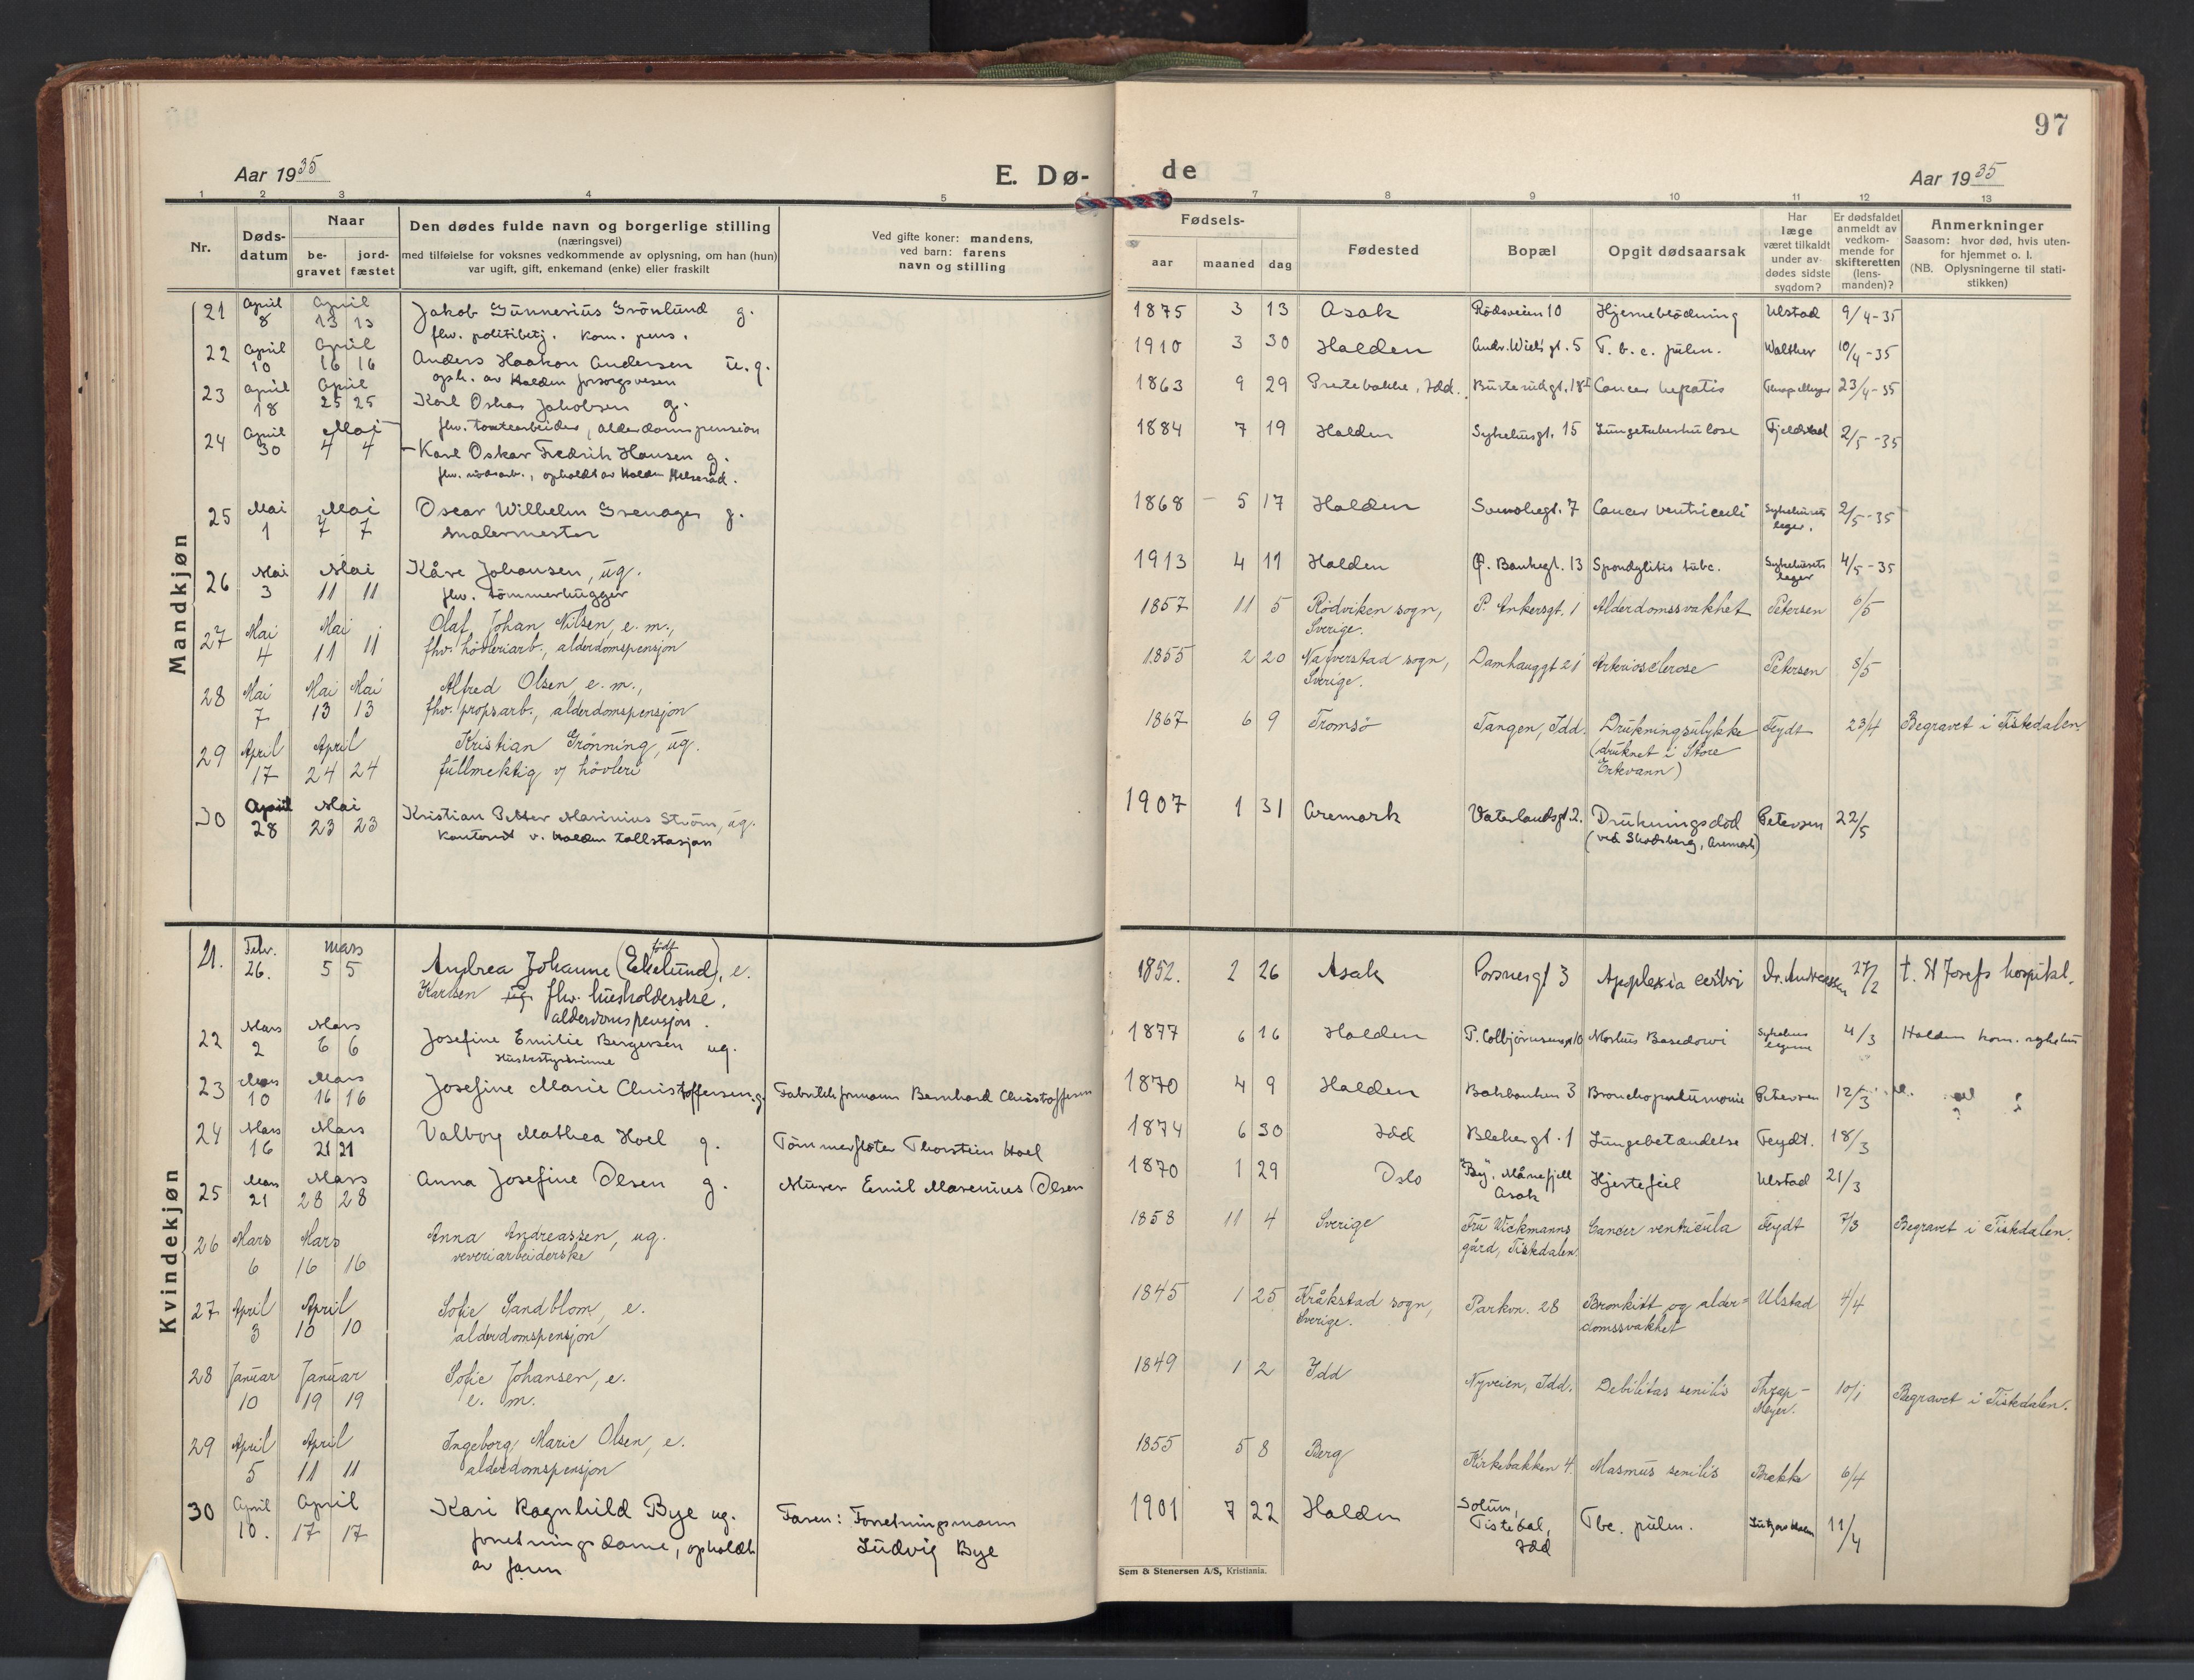 97
Aar 1935
E. Dø-
de
Aar 1935
1 2 3 4 5 7 8 9 10 11 12 13
Nr.
Døds-
datum
Naar
be-
gravet
jord-
fæstet
Den dødes fulde navn og borgerlige stilling
(næringsvei)
med tilføielse for voksnes vedkommende av oplysning, om han (hun)
var ugift, gift, enkemand (enke) eller fraskilt
Ved gifte koner: mandens,
ved barn: farens
navn og stilling
Fødsels-
aar maaned dag
Fødested
Bopæl
Opgit dødsaarsak
Har
læge
været tilkaldt
under av-
dødes sidste
sygdom?
Er dødsfaldet
anmeldt av
vedkom-
mende for
skifteretten
(lens-
manden)?
Anmerkninger
Saasom: hvor død, hvis uten-
for hjemmet o. l.
(NB. Oplysningerne til stati-
stikken)
Mandkjøn
21 April 8 April 13 13 Jakob Gunnerius Grönlund g. 1875 3 13 Asak Rödsveien 10 Hjerneblödning Ulstad 9/4-35
fhv. politibetj. kom. pens.
22 April 10 April 16 16 Anders Haakon Andersen u.g. 1910 3 30 Halden Andr. Wiels gt. 5 T. b. c. pulm. Walther 10/4-35
oph. av Halden forsorgsvesen
23 April 18 April 25 25 Karl Oskar Jakobsen g. 1863 9 29 Prestebakke, Idd. Busterudgt. 18 Cancer hepatis 23/4-35
fhv. tomtearbeider, alderdomspension
24 April 30 Mai 4 4 Karl Oskar Fredrik Hansen g. 1884 7 19 Halden Sykehusgt. 15 Lungetuberkulose Fjeldstad 2/5-35
fhv. nödsarb., opholdt av Halden Helseråd.
25 Mai 1 Mai 7 7 Oscar Wilhelm Grenager g. 1868 5 17 Halden Svenskegt. 7 Cancer ventriculi Sykehusets leger. 2/5-35
malermester
26 Mai 3 Mai 11 11 Kåre Johansen, ug. 1913 4 11 Halden Ø. Bankegt. 13 Spondylitis tubc. Sykehusets leger 4/5-35
fhv. tømmerhugger
27 Mai 4 Mai 11 11 Olaf Johan Nilsen, e. m., 1857 11 5 Rödviken sogn, Sverige. P. Ankersgt. 1 Alderdomssvakhet Petersen 6/5
fhv. hövleriarb., alderdomspensjon
28 Mai 7 Mai 13 Mai 13 Alfred Olsen, e. m., 1855 2 20 Naverstad sogn, Sverige. Damhauggt 21 Arteriosclerose Petersen 8/5
fhv. propsarb., alderdomspensjon
29 April 17 April 24 24 Kristian Grönning, ug. 1867 6 9 Tromsö Tangen, Idd. Drukningsulykke (druknet i Store Ertevann) Feydt 23/4 Begravet i Tistedalen.
fullmektig v/ hövleri
30 April 28 Mai 23 23 Kristian Petter Marinius Ström, ug. 1907 1 31 Aremark Vaterlandsgt 2. Drukningsdöd (ved Skodsberg, Aremark) Petersen 22/5
kontorist v. Halden tollstasjon
Kvindekjøn
21. Febr. 26. Mars 5 5 Andrea Johanne (født Ekelund), e. 1852. 2 26 Asak Porsnesgt 3 Apoplexia cerebri Dr. Andreassen 27/2 t. St Josefs hospital.
Karlsen ug fhv. husholderske,
alderdomspensjon.
22 Mars 2 Mars 6 6 Josefine Emilie Bergersen ug. 1877 6 16 Halden P. Colbjørnsensgt 10 Morbus Basedowi Sykehus legene 4/3 Halden kom. sykehus
Husbestyrerinne
23 Mars 10 Mars 16 16 Josefine Marie Christoffersen g. Fabrikkformann Bernhard Christoffersen 1870 4 9 Halden Bakbanken 3 Bronchopneumonie Petersen 12/3
24 Mars 16 Mars 21 21 Valborg Mathea Hoel g. Tömmerfløter Thorstein Hoel 1874 6 30 Idd Blekergt. 1 Lungebetændelse Feydt. 18/3
25 Mars 21 Mars 28 28 Anna Josefine Olsen g. Murer Emil Marenius Olsen 1870 1 29 Oslo "By", Månefjell Asak Hjertefeil Ulstad 21/3
26 Mars 6 Mars 16 16 Anna Andreassen, ug. 1858 11 4 Sverige Fru Wickmanns gård, Tistedalen Cancer ventricula Feydt 7/3 Begravet i Tistedalen.
veveriarbeiderske
27 April 3 April 10 10 Sofie Sandblom, e. 1845 1 25 Kråkstad sogn, Sverige. Parkvn. 28 Bronkitt og alder-domssvakhet Ulstad 4/4
alderdomspensjon
28 Januar 10 Januar 19 19 Sofie Johansen, e. 1849 1 2 Idd Nyveien, Idd. Debilitas senilis Thrap-Meyer. 10/1 Begravet i Tistedalen.
e. m.
29 April 5 April 11 11 Ingeborg Marie Olsen, e. 1855 5 8 Berg Kirkebakken 4. Masmus senilis Brekke 6/4
alderdomspensjon
30 April 10. April 17 17 Kari Ragnhild Bye ug. Faren: Forretningsmann Ludvig Bye 1901 7 22 Halden Solum, Tistedal, Idd Tbc. pulm. 11/4
forretningsdame, opholdt
av faren
Sem & Stenersen A/S, Kristiania.